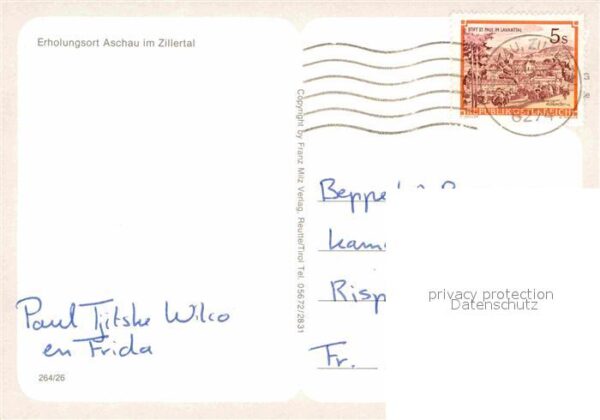 Erholungsort Aschau im Zillertal
STIFT ST. PAUL IM LAVANTTAL
5s
REPUBLIK ÖSTERREICH
Copyright by Franz Milz Verlag, Reutte/Tirol Tel. 05672/2831
Beppe
Kam
Risp
Fr.
privacy protection
Datenschutz
Paul Tjitske Wilco
en Frida
264/26